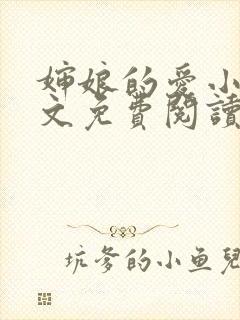 婶娘的爱小
文免费閱讀
坑爹的小鱼兒